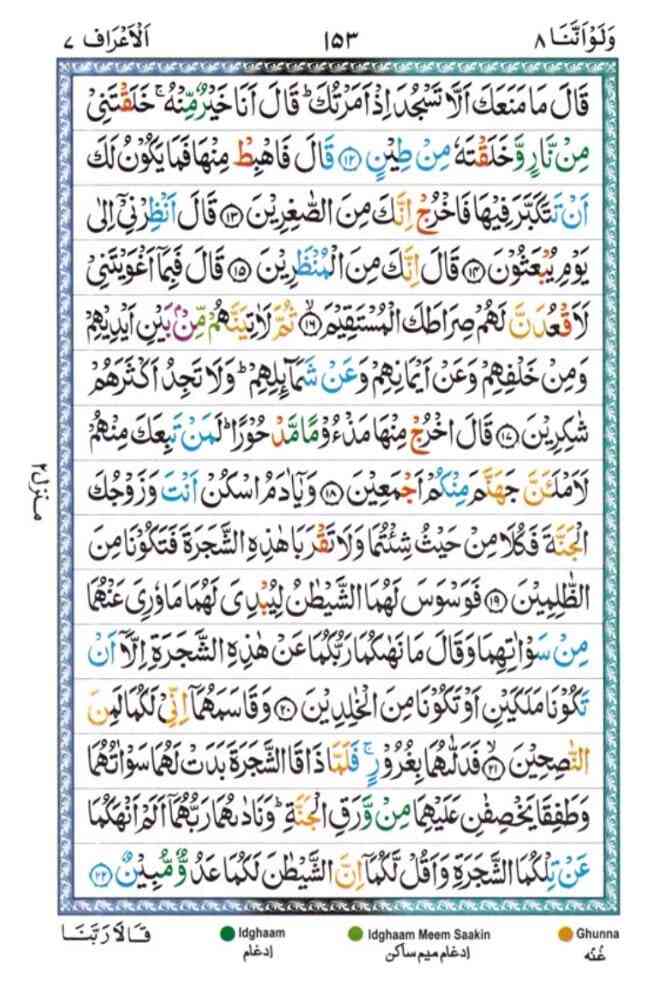 وَلَوۡاَنَّنَا ٨
١٥٣
اَلۡاَعۡرَاف ٧
قَالَ مَا مَنَعَكَ اَلَّا تَسۡجُدَ اِذۡ اَمَرۡتُكَ ؕ قَالَ اَنَا خَيۡرٌ مِّنۡهُ ۚ خَلَقۡتَنِىۡ
مِنۡ نَّارٍ وَّخَلَقۡتَهٗ مِنۡ طِيۡنٍ ﴿۱۲﴾ قَالَ فَاهۡبِطۡ مِنۡهَا فَمَا يَكُوۡنُ لَكَ
اَنۡ تَتَكَبَّرَ فِيۡهَا فَاخۡرُجۡ اِنَّكَ مِنَ الصّٰغِرِيۡنَ ﴿۱۳﴾ قَالَ اَنۡظِرۡنِىۡۤ اِلٰى
يَوۡمِ يُبۡعَثُوۡنَ ﴿۱۴﴾ قَالَ اِنَّكَ مِنَ الۡمُنۡظَرِيۡنَ ﴿۱۵﴾ قَالَ فَبِمَاۤ اَغۡوَيۡتَنِىۡ
لَاَقۡعُدَنَّ لَهُمۡ صِرَاطَكَ الۡمُسۡتَقِيۡمَ ﴿۱۶﴾ ۙ ثُمَّ لَاٰتِيَنَّهُمۡ مِّنۡۢ بَيۡنِ اَيۡدِيۡهِمۡ
وَمِنۡ خَلۡفِهِمۡ وَعَنۡ اَيۡمَانِهِمۡ وَعَنۡ شَمَآئِلِهِمۡ ؕ وَلَا تَجِدُ اَكۡثَرَهُمۡ
شٰكِرِيۡنَ ﴿۱۷﴾ قَالَ اخۡرُجۡ مِنۡهَا مَذۡءُوۡمًا مَّدۡحُوۡرًا ؕ لَمَنۡ تَبِعَكَ مِنۡهُمۡ
لَاَمۡلَئَنَّ جَهَنَّمَ مِنۡكُمۡ اَجۡمَعِيۡنَ ﴿۱۸﴾ وَيٰۤاٰدَمُ اسۡكُنۡ اَنۡتَ وَزَوۡجُكَ
الۡجَنَّةَ فَكُلَا مِنۡ حَيۡثُ شِئۡتُمَا وَلَا تَقۡرَبَا هٰذِهِ الشَّجَرَةَ فَتَكُوۡنَا مِنَ
الظّٰلِمِيۡنَ ﴿۱۹﴾ فَوَسۡوَسَ لَهُمَا الشَّيۡطٰنُ لِيُبۡدِىَ لَهُمَا مَا وٗرِىَ عَنۡهُمَا
مِنۡ سَوۡاٰتِهِمَا وَقَالَ مَا نَهٰٮكُمَا رَبُّكُمَا عَنۡ هٰذِهِ الشَّجَرَةِ اِلَّاۤ اَنۡ
تَكُوۡنَا مَلَكَيۡنِ اَوۡ تَكُوۡنَا مِنَ الۡخٰلِدِيۡنَ ﴿۲۰﴾ وَقَاسَمَهُمَاۤ اِنِّىۡ لَكُمَا لَمِنَ
النّٰصِحِيۡنَ ﴿۲۱﴾ ۙ فَدَلّٰٮهُمَا بِغُرُوۡرٍ ۚ فَلَمَّا ذَاقَا الشَّجَرَةَ بَدَتۡ لَهُمَا سَوۡاٰتُهُمَا
وَطَفِقَا يَخۡصِفٰنِ عَلَيۡهِمَا مِنۡ وَّرَقِ الۡجَنَّةِ ؕ وَنَادٰٮهُمَا رَبُّهُمَاۤ اَلَمۡ اَنۡهَكُمَا
عَنۡ تِلۡكُمَا الشَّجَرَةِ وَاَقُلْ لَّكُمَاۤ اِنَّ الشَّيۡطٰنَ لَكُمَا عَدُوٌّ مُّبِيۡنٌ ﴿۲۲﴾
منزل ٢
قَالَا رَبَّنَا
Idghaam
ادغام
Idghaam Meem Saakin
ادغام میم ساکن
Ghunna
غُنّه